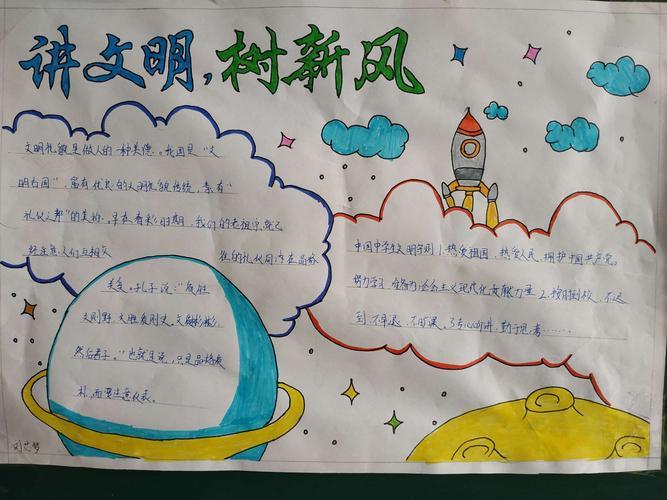 讲文明,树新风
文明礼貌是做人的一种美德。我国是"文
明古国",富有优良的文明礼貌传统,素有"
礼仪之邦"的美称。早在春秋时期,我们的老祖宗就已
经注意人们与相交
往的礼仪同内在品格
关系。孔子说:"质胜
文则野,文胜质则史,文质彬彬,
然后君子。"也就是说,只是品格质
朴,而要注意仪表。
中国中学生文明守则 1.热爱祖国,热爱人民,拥护中国共产党。
努力学习 准备为社会主义现代化贡献力量 2.按时到校,不迟
到 不早退,不旷课。3.专心听讲,勤于思考……